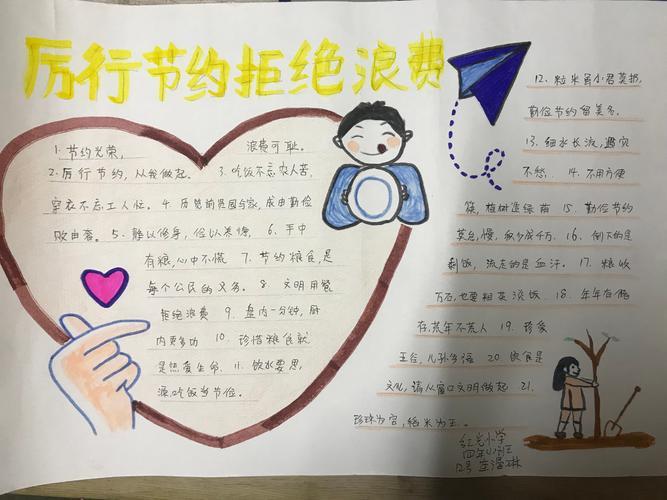 厉行节约拒绝浪费
1. 节约光荣, 浪费可耻。
2. 厉行节约, 从我做起。 3. 吃饭不忘农人苦,
穿衣不忘工人忙。 4. 历览前贤国与家, 成由勤俭
败由奢。 5. 静以修身, 俭以养德, 6. 手中
有粮, 心中不慌 7. 节约粮食, 是
每个公民的义务。 8. 文明用餐
拒绝浪费 9. 盘内一分钟, 厨
内更多功 10. 珍惜粮食就
是热爱生命. 11. 饮水要思
源, 吃饭当节俭。
12. 粒米虽小君莫扔,
勤俭节约留美名.
13. 细水长流, 遇灾
不愁. 14. 不用方便
筷, 植树造绿荫 15. 勤俭节约
莫怠, 慢, 积少成千万. 16. 倒下的是
剩饭, 流走的是血汗。 17. 粮收
万石, 也要粗茶淡饭 18. 年年有储
存, 荒年不荒人 19. 珍爱
五谷, 儿孙多福 20 饮食是
文化, 请从窗口文明做起 21.
珍珠为宫, 稻米为王。
红光小学
12号